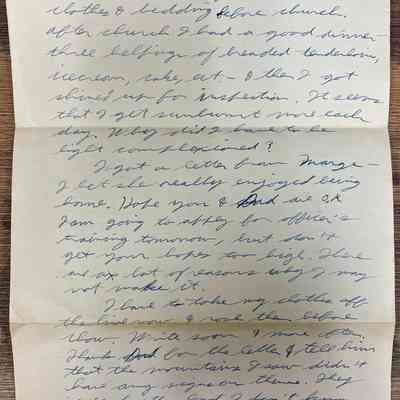 clothes & bedding before church.
After church I had a good dinner
three helpings of breaded tenderloin,
icecream, cake, ect - & then I got
shined up for inspection. It seems
that I get sunburnt more each
day. Why did I have to be
light complexioned?
I got a letter from Marge -
I bet she really enjoyed being
home. Hope you & Dad are OK
I am going to apply for officer's
training tomorrow, but don't
get your hopes too high. There
are a lot of reasons why I may
not make it.
I have to take my clothes off
the line now & wash them before
chow. Write soon & more often.
Thank Dad for the letter & tell him
that the mountains I saw didn't
have any signs on them. They
don't know